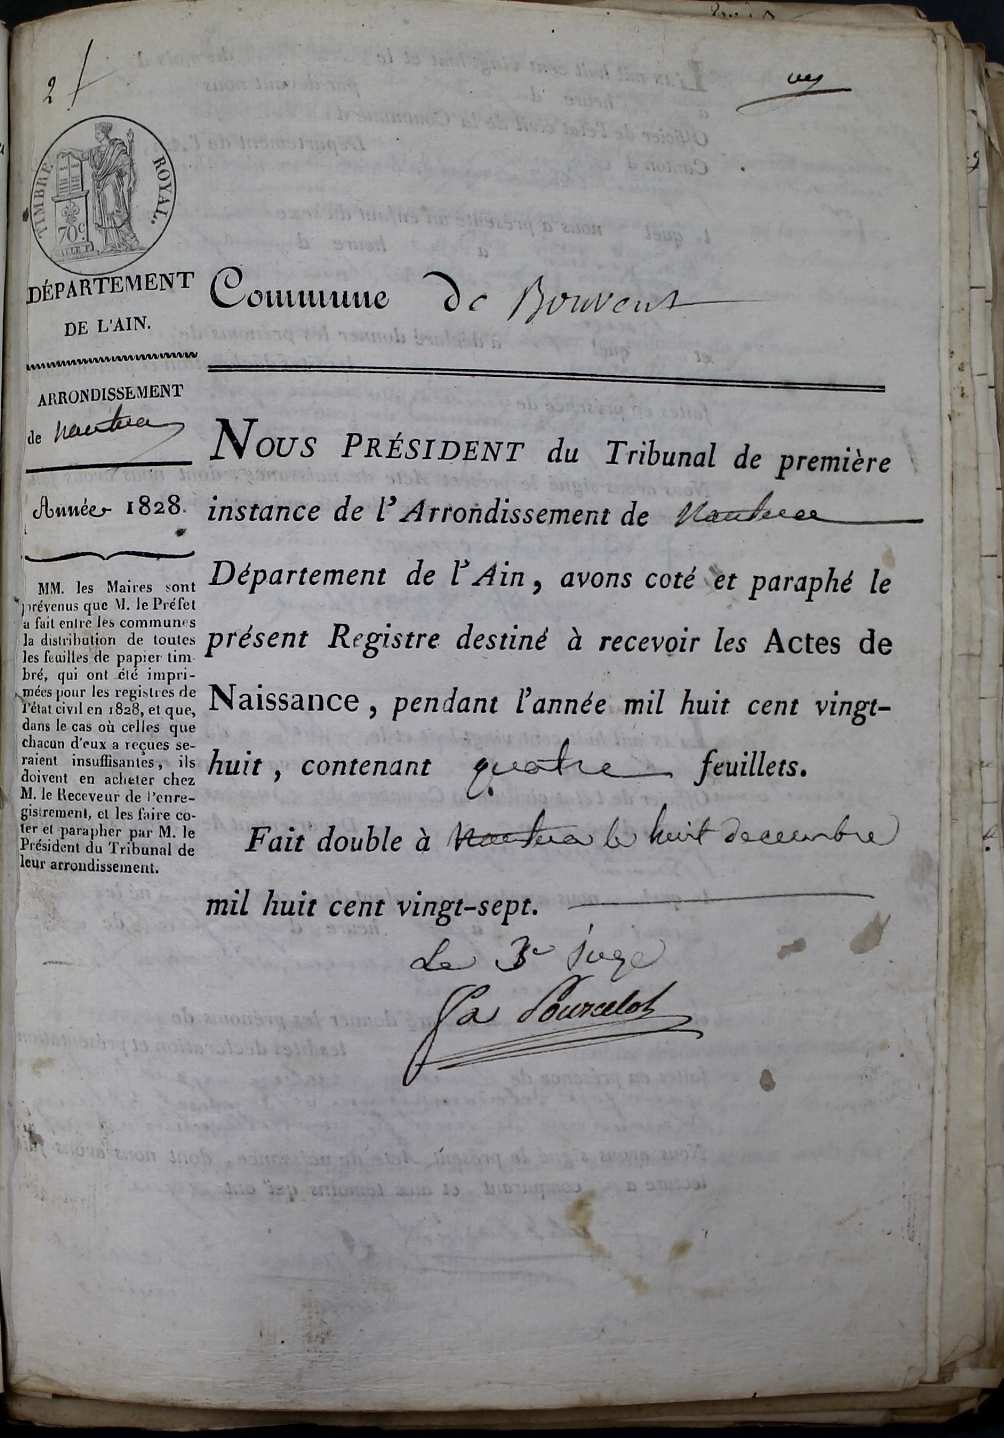 2
TIMBRE ROYAL.
70c.
DÉPARTEMENT
DE L'AIN.
ARRONDISSEMENT
de Nantua
Année 1828.
MM. les Maires sont
prévenus que M. le Préfet
a fait entre les communes
la distribution de toutes
les feuilles de papier tim-
bré, qui ont été impri-
mées pour les registres de
l'état civil en 1828, et que,
dans le cas où celles que
chacun d'eux a reçues se-
raient insuffisantes, ils
doivent en acheter chez
M. le Receveur de l'enre-
gistrement, et les faire co-
ter et parapher par M. le
Président du Tribunal de
leur arrondissement.
Commune de Bouvent
NOUS PRÉSIDENT du Tribunal de première
instance de l'Arrondissement de Nantua
Département de l'Ain, avons coté et paraphé le
présent Registre destiné à recevoir les Actes de
Naissance, pendant l'année mil huit cent vingt-
huit, contenant quatre feuillets.
Fait double à Nantua le huit decembre
mil huit cent vingt-sept.
Le 3e Juge
Pourcelot